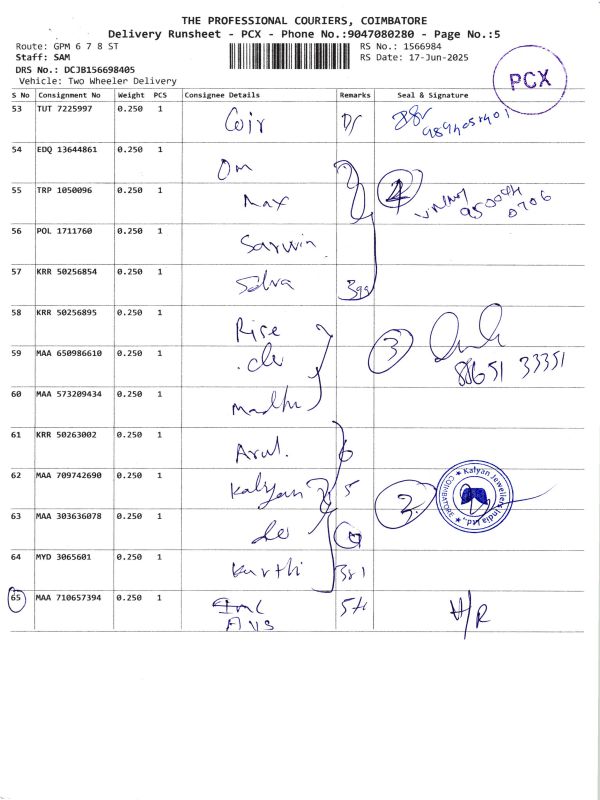 THE PROFESSIONAL COURIERS, COIMBATORE
Delivery Runsheet - PCX - Phone No.:9047080280 - Page No.:5
Route: GPM 6 7 8 ST
RS No.: 1566984
Staff: SAM
RS Date: 17-Jun-2025
DRS No.: DCJB156698405
Vehicle: Two Wheeler Delivery
PCX
S No Consignment No Weight PCS Consignee Details Remarks Seal & Signature
53 TUT 7225997 0.250 1 Coir
54 EDQ 13644861 0.250 1 Om
55 TRP 1050096 0.250 1 Max
56 POL 1711760 0.250 1 Sarwin
57 KRR 50256854 0.250 1 Selva
58 KRR 50256895 0.250 1 Rise
59 MAA 650986610 0.250 1 3
88651 33351
60 MAA 573209434 0.250 1 Madhu
61 KRR 50263002 0.250 1 Arul
62 MAA 709742690 0.250 1 Kalyan 5
Kalyan Jewellers India Ltd., COIMBATORE
63 MAA 303636078 0.250 1
64 MYD 3065601 0.250 1 Kurthi
65 MAA 710657394 0.250 1 H/R